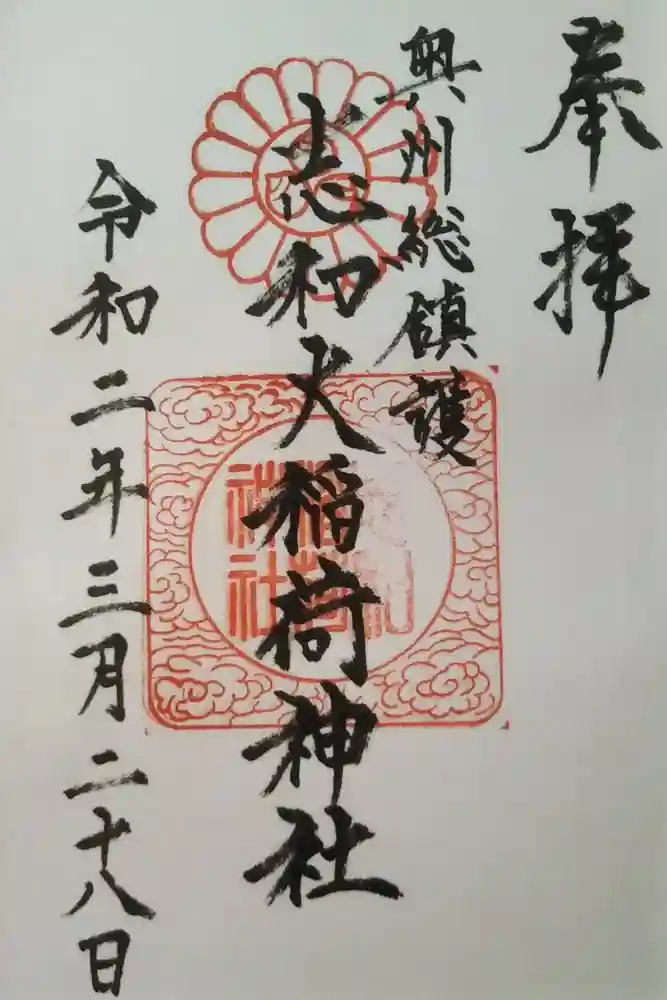 奉拝
奥州総鎮護
志和大稲荷神社
令和二年三月二十八日
稲荷
神社